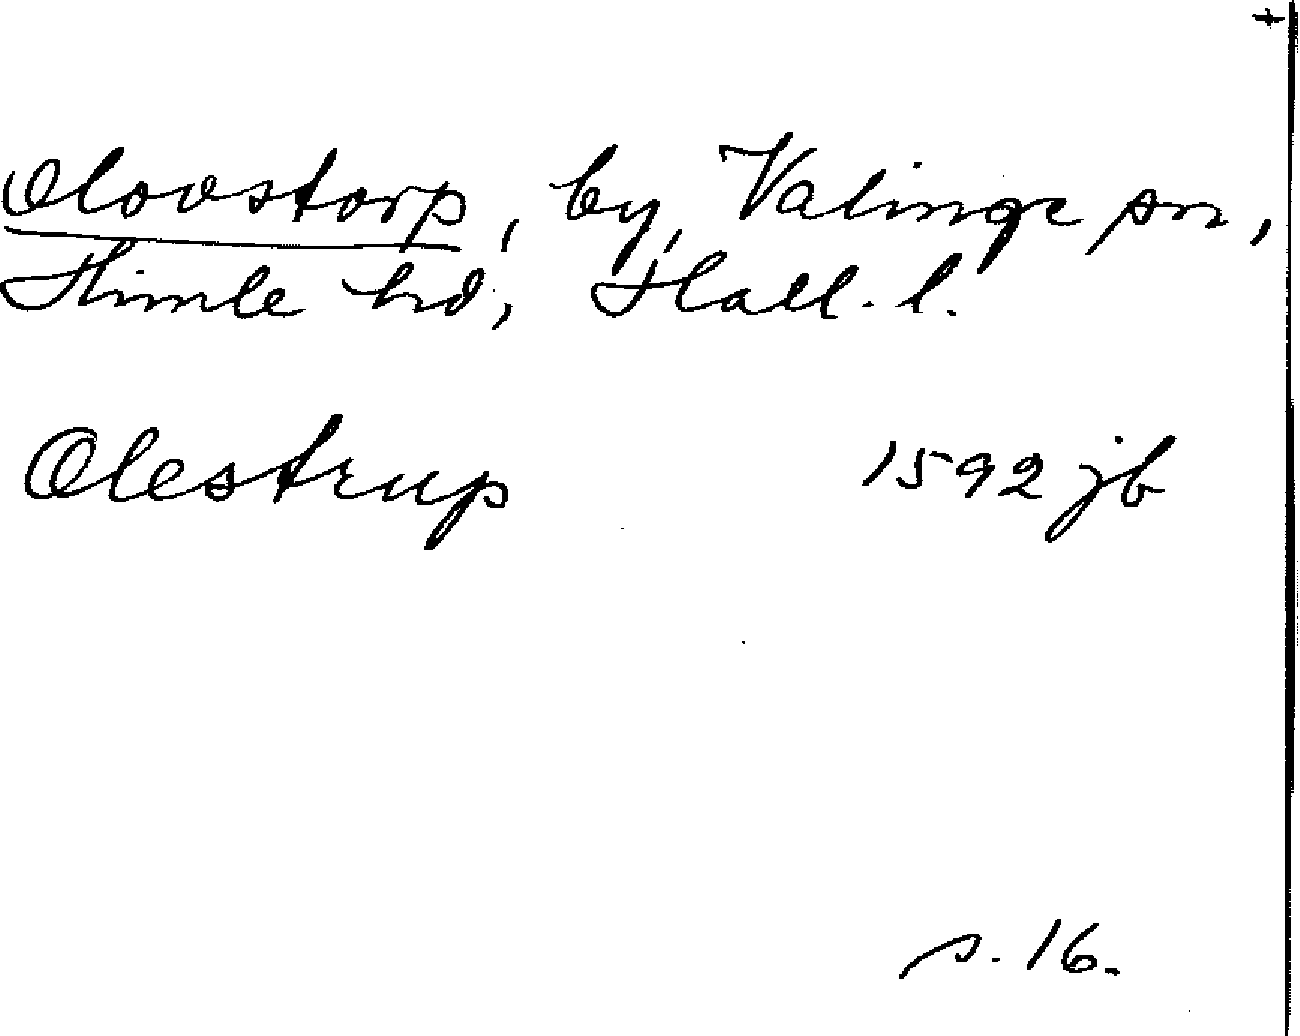 Olovstorp, by, Valinge sn,
Himle hd, Hall. l.
Olestrup 1592 jb
s. 16.